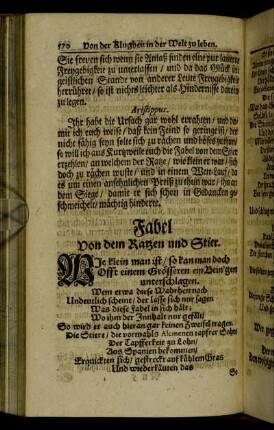 570 Von der Klugheit in der Welt zu leben.
Sie freyen sich wenn sie Anlaß finden eine pur lautere
Freygebigkeit zu unterlassen / und da das Glück im
geistlichen Stande von anderer Leute Freygebigkeit
herrühret / so ist nichts leichter als Hindernisse darein
zu legen.
Aristippus.
Ihr habt die Ursach gar wohl errahten / und da-
mit ich euch weise / daß kein Feind so gering ist / der
nicht fähig seyn solte sich zu rächen und böses zuthun/
so will ich aus Kurtzweile euch die Fabel von dem Stier
erzehlen / an welchem der Ratze / wie klein er war / sich
doch zu rächen wuste / und in einem Wett-Lauf / da
es um einen ansehnlichen Preiß zu thun war / ihn an
dem Siege / damit er sich schon in Gedancken ge-
schmeichelt / mächtig hinderte.
Fabel
Von dem Ratzen und Stier.
Wie klein man ist / so kan man doch
Offt einem Grösseren ein Bein gen
unterschlagen.
Wem etwa diese Wahrheit noch
Undeutlich scheint / der lasse sich nur sagen
Was diese Fabel in sich hält;
Wo ihm der Innhalt nur gefäll/
So wird er auch hieran gar keinen Zweifel tragen.
Die Stiere / die vormahls Alcmenen tapffrer Sohn
Der Tapfferkeit zu Lohn/
Aus Spanien bekommen/
Ergnickten sich / gestreckt auf kühlem Gras
Und wiederkäuten das